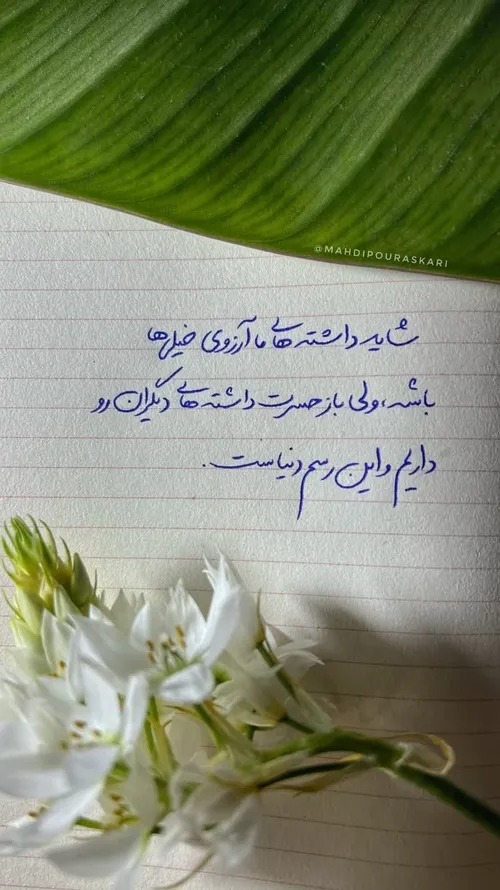 @MAHDIPOURASKARI
شاید داشته‌های ما آرزوی خیلیها
باشه، ولی باز حسرت داشته‌های دیگران رو
داریم و این رسم دنیاست.